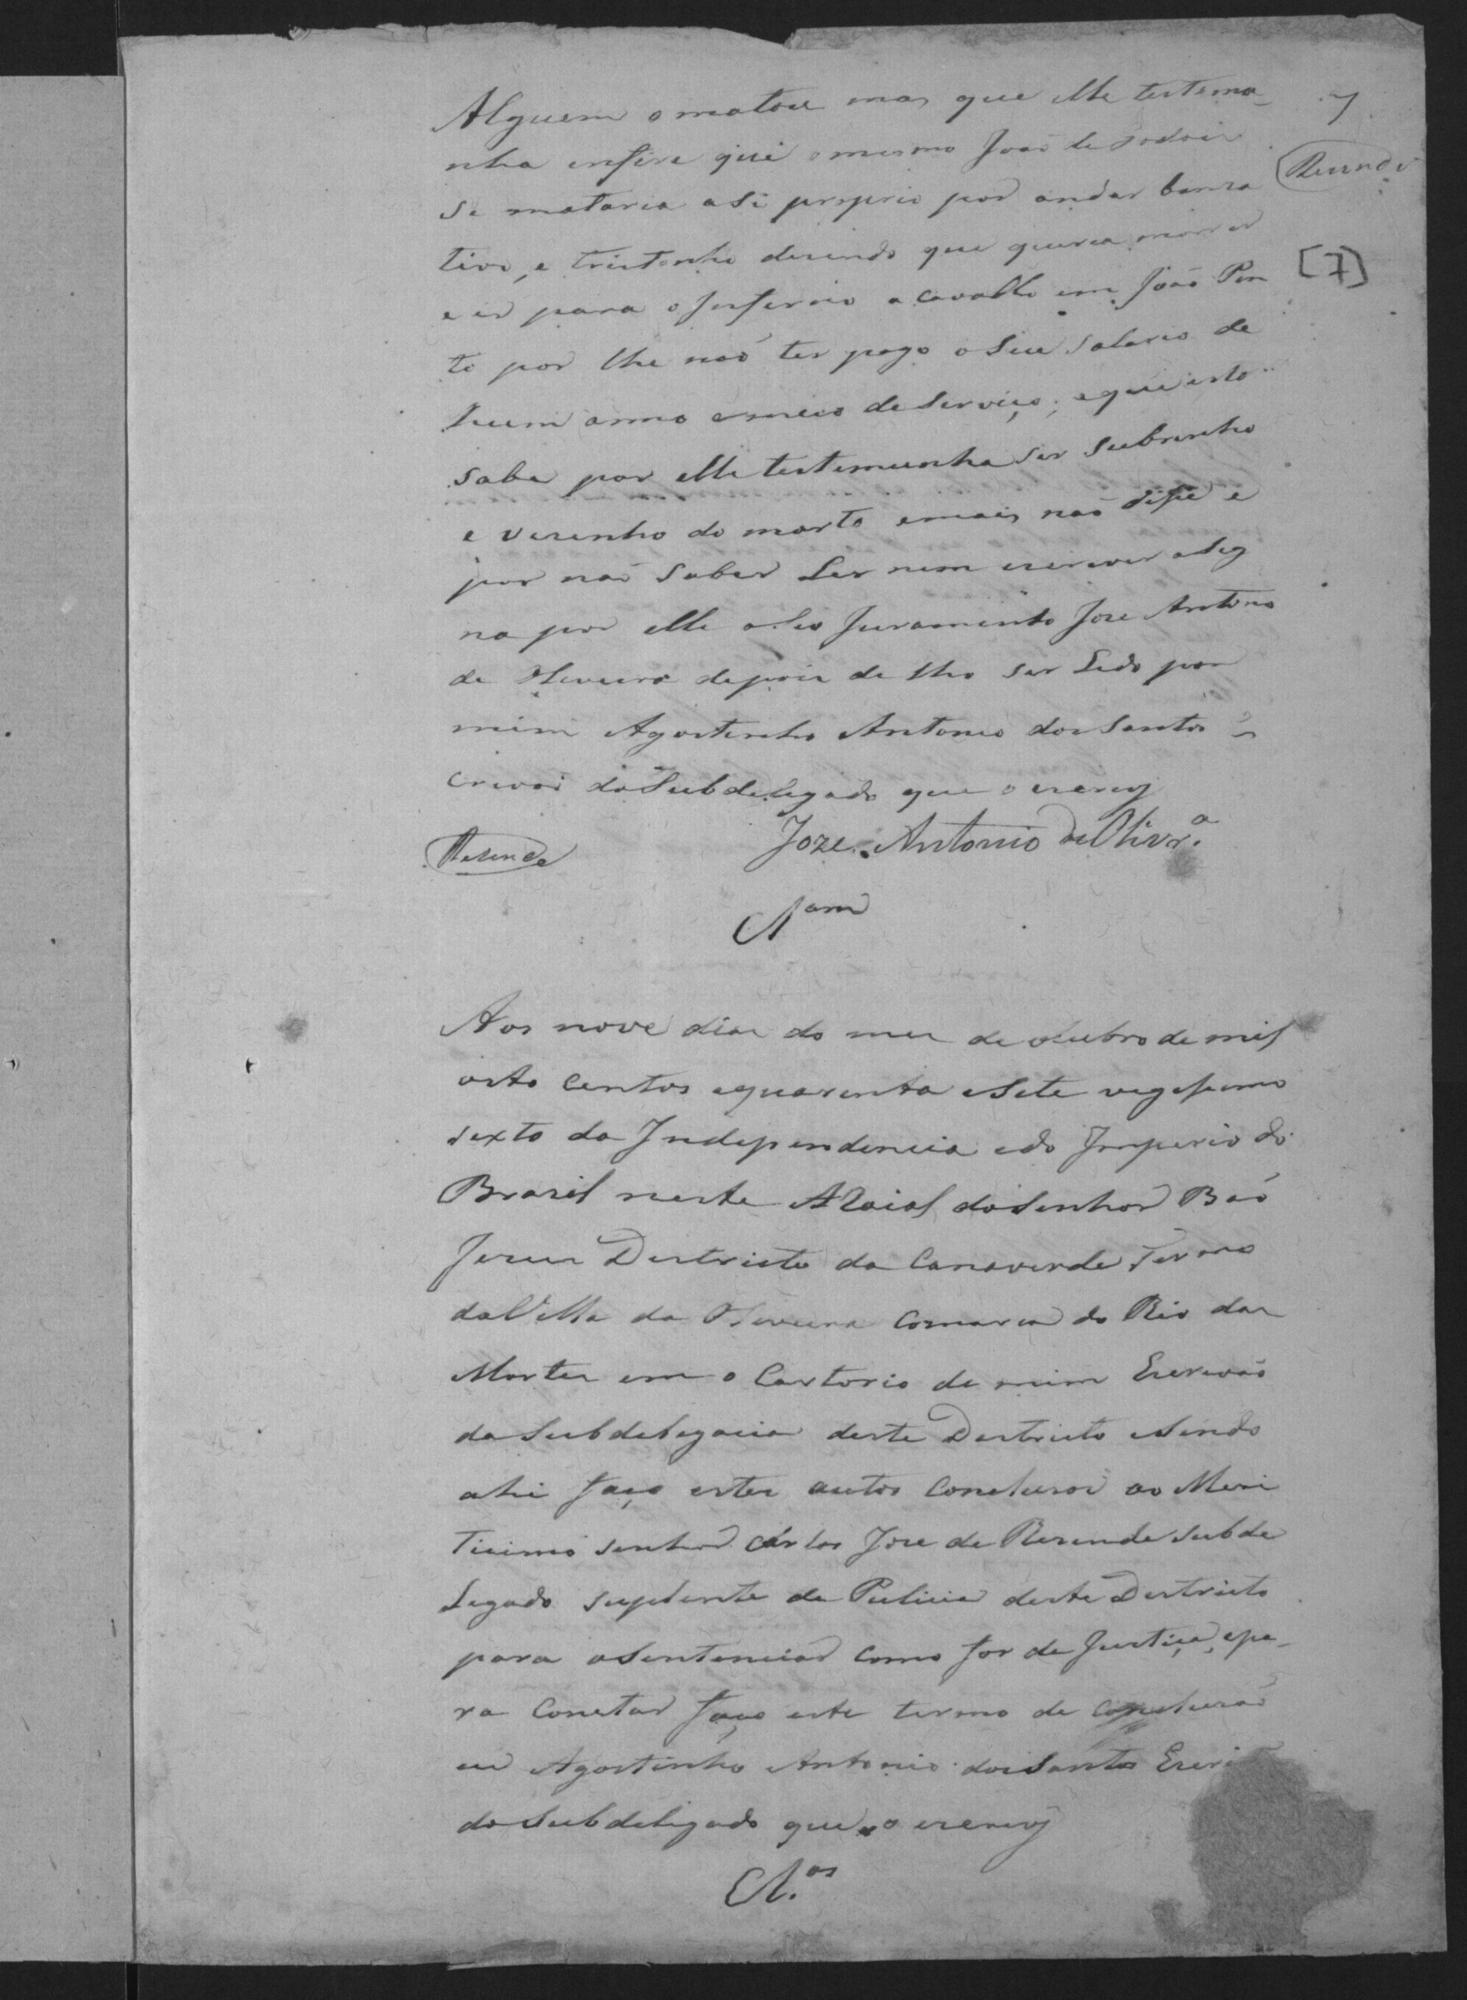 7
Resende
[7]
Alguem o matou mas que elle testemo-
nha enfire que o mesmo João de Godoir
se mataria a si proprio por andar banza
tivo, e tristonho disendo que queria morrer
e ir para o Inferno a cavallo em João Pin
to por lhe naõ ter pago o seu salario de
huum anno e meio de serviço; e que isto
sabe por elle testemunha ser subrinho
e vesinho do morto e mais naõ dise e
por naõ saber Ler nem escrever asig
na por elle o seo Juramento Jose Antonio
de Oliveira depois de lho ser Lido por
mim Agostinho Antonio dos Santos Es
crivaõ do Subdelegado que o escrevy
Resende
Joze Antonio de Olivr.ª
Clam
Aos nove dias do mes de oitubro de mil
oito centos e quarenta e sete vegesimo
sexto da Independencia e do Imperio do
Brasil neste ARaial do Senhor Bão
Jesus Destricto da Canaverde Termo
da Villa da Oliveira Comarca do Rio das
Mortes em o Cartorio de mim Escrivaõ
da Subdelegacia deste Destricto e sendo
ahi faço estes autos Conclusos ao Meri
tisimo senhor Carlos Jose de Resende subde
Legado suplente de Pulicia deste Destricto
para o Sentenciar como for de Justiça, epa-
ra Constar faço este termo de Conclusaõ
eu Agostinho Antonio dos Santos Escri
do Subdelegado que o escrevy
Cl.os